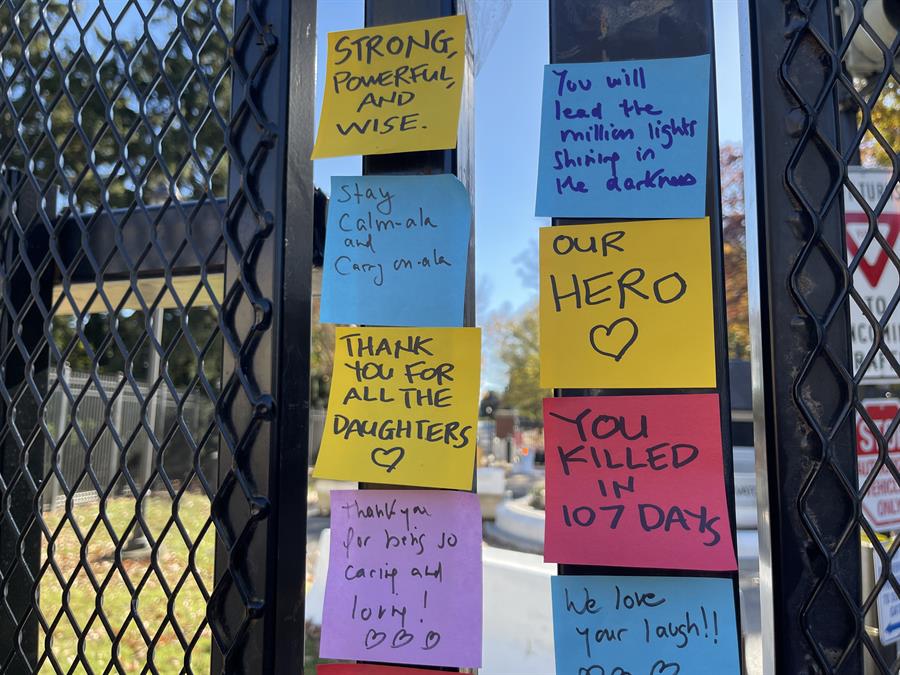 STRONG,
POWERFUL,
AND
WISE.
Stay
Calm-ala
and
Carry on-ala
THANK
YOU FOR
ALL THE
DAUGHTERS
Thank you
for being so
caring and
loving!
You will
lead the
million lights
shining in
the darkness
OUR
HERO
YOU
KILLED
IN
107 DAYS
We love
your laugh!!
TURN
TO
ONCOMING
STOP
VEHICLES
ONLY